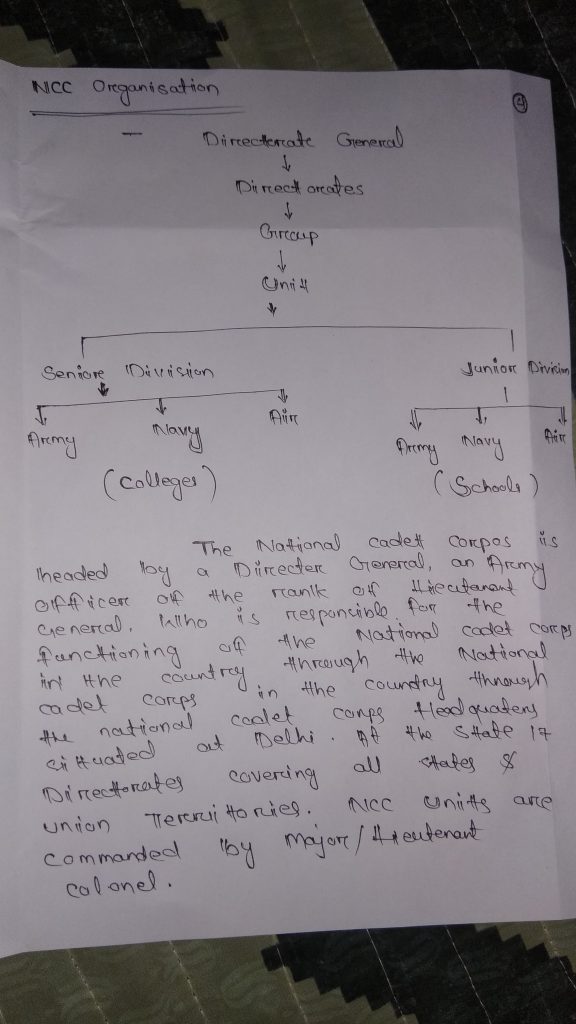 NCC Organisation
4
— Directorate General
↓
Directorates
↓
Group
↓
Unit
↓
Seniore Division Junior Division
Army Navy Air Army Navy Air
(Colleges) (Schools)
The National cadet corpos is
headed by a Director General, an Army
officer of the rank of Lieutenant
General. Who is responcible for the
functioning of the National cadet corps
in the country through the National
cadet corps in the country through
the national cadet corps Headquaters
situated at Delhi. At the State 17
Directorates covering all states &
union Terruitories. NCC Units are
commanded by Major/Lieutenant
colonel.